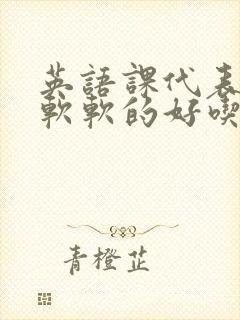 英語課代表
軟軟的好喫
青橙芷